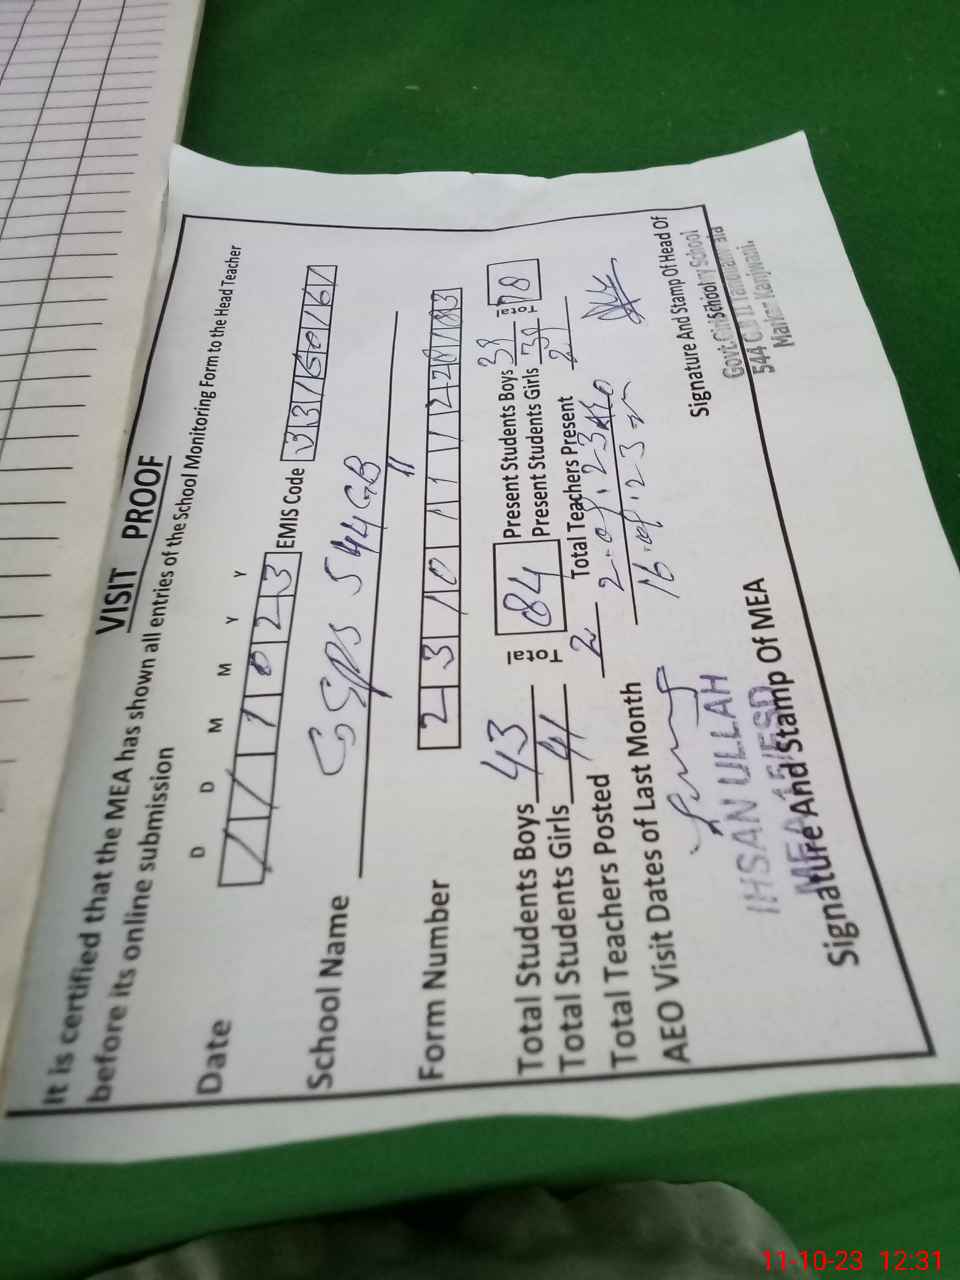 VISIT PROOF
It is certified that the MEA has shown all entries of the School Monitoring Form to the Head Teacher
before its online submission
D D M M Y Y
Date 1 1 1 0 2 3 EMIS Code 3 3 1 6 0 1 6 1
School Name GGPS 544 GB
"
Form Number 2 3 1 0 1 1 1 2 2
Total Students Boys 43 Total 84 Present Students Boys 39 Total 78
Total Students Girls 41 Present Students Girls 39
Total Teachers Posted 2 Total Teachers Present 2
AEO Visit Dates of Last Month 2-09-23 AEO
16-09-23
IHSAN ULLAH
MEA
Signature And Stamp Of MEA
Signature And Stamp Of Head Of
School
Govt. School
544
11-10-23 12:31